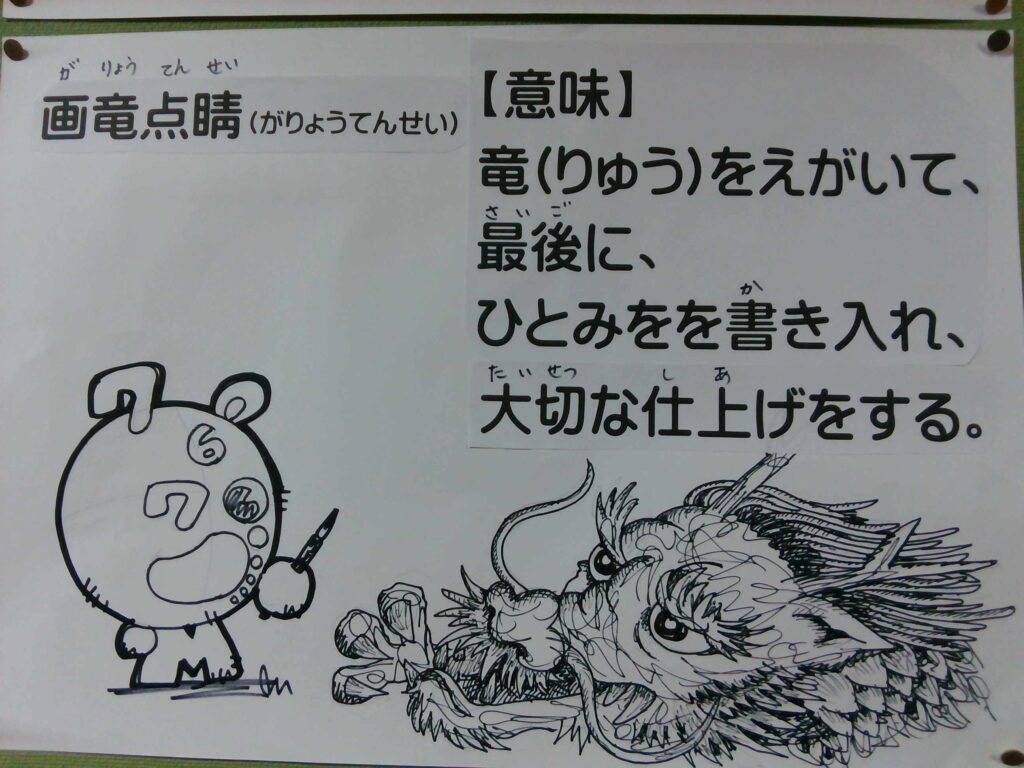 がりょうてんせい
画竜点睛(がりょうてんせい)
【意味】
竜(りゅう)をえがいて、
さいご
最後に、
か
ひとみをを書き入れ、
たいせつ しあ
大切な仕上げをする。
6
ワ
M